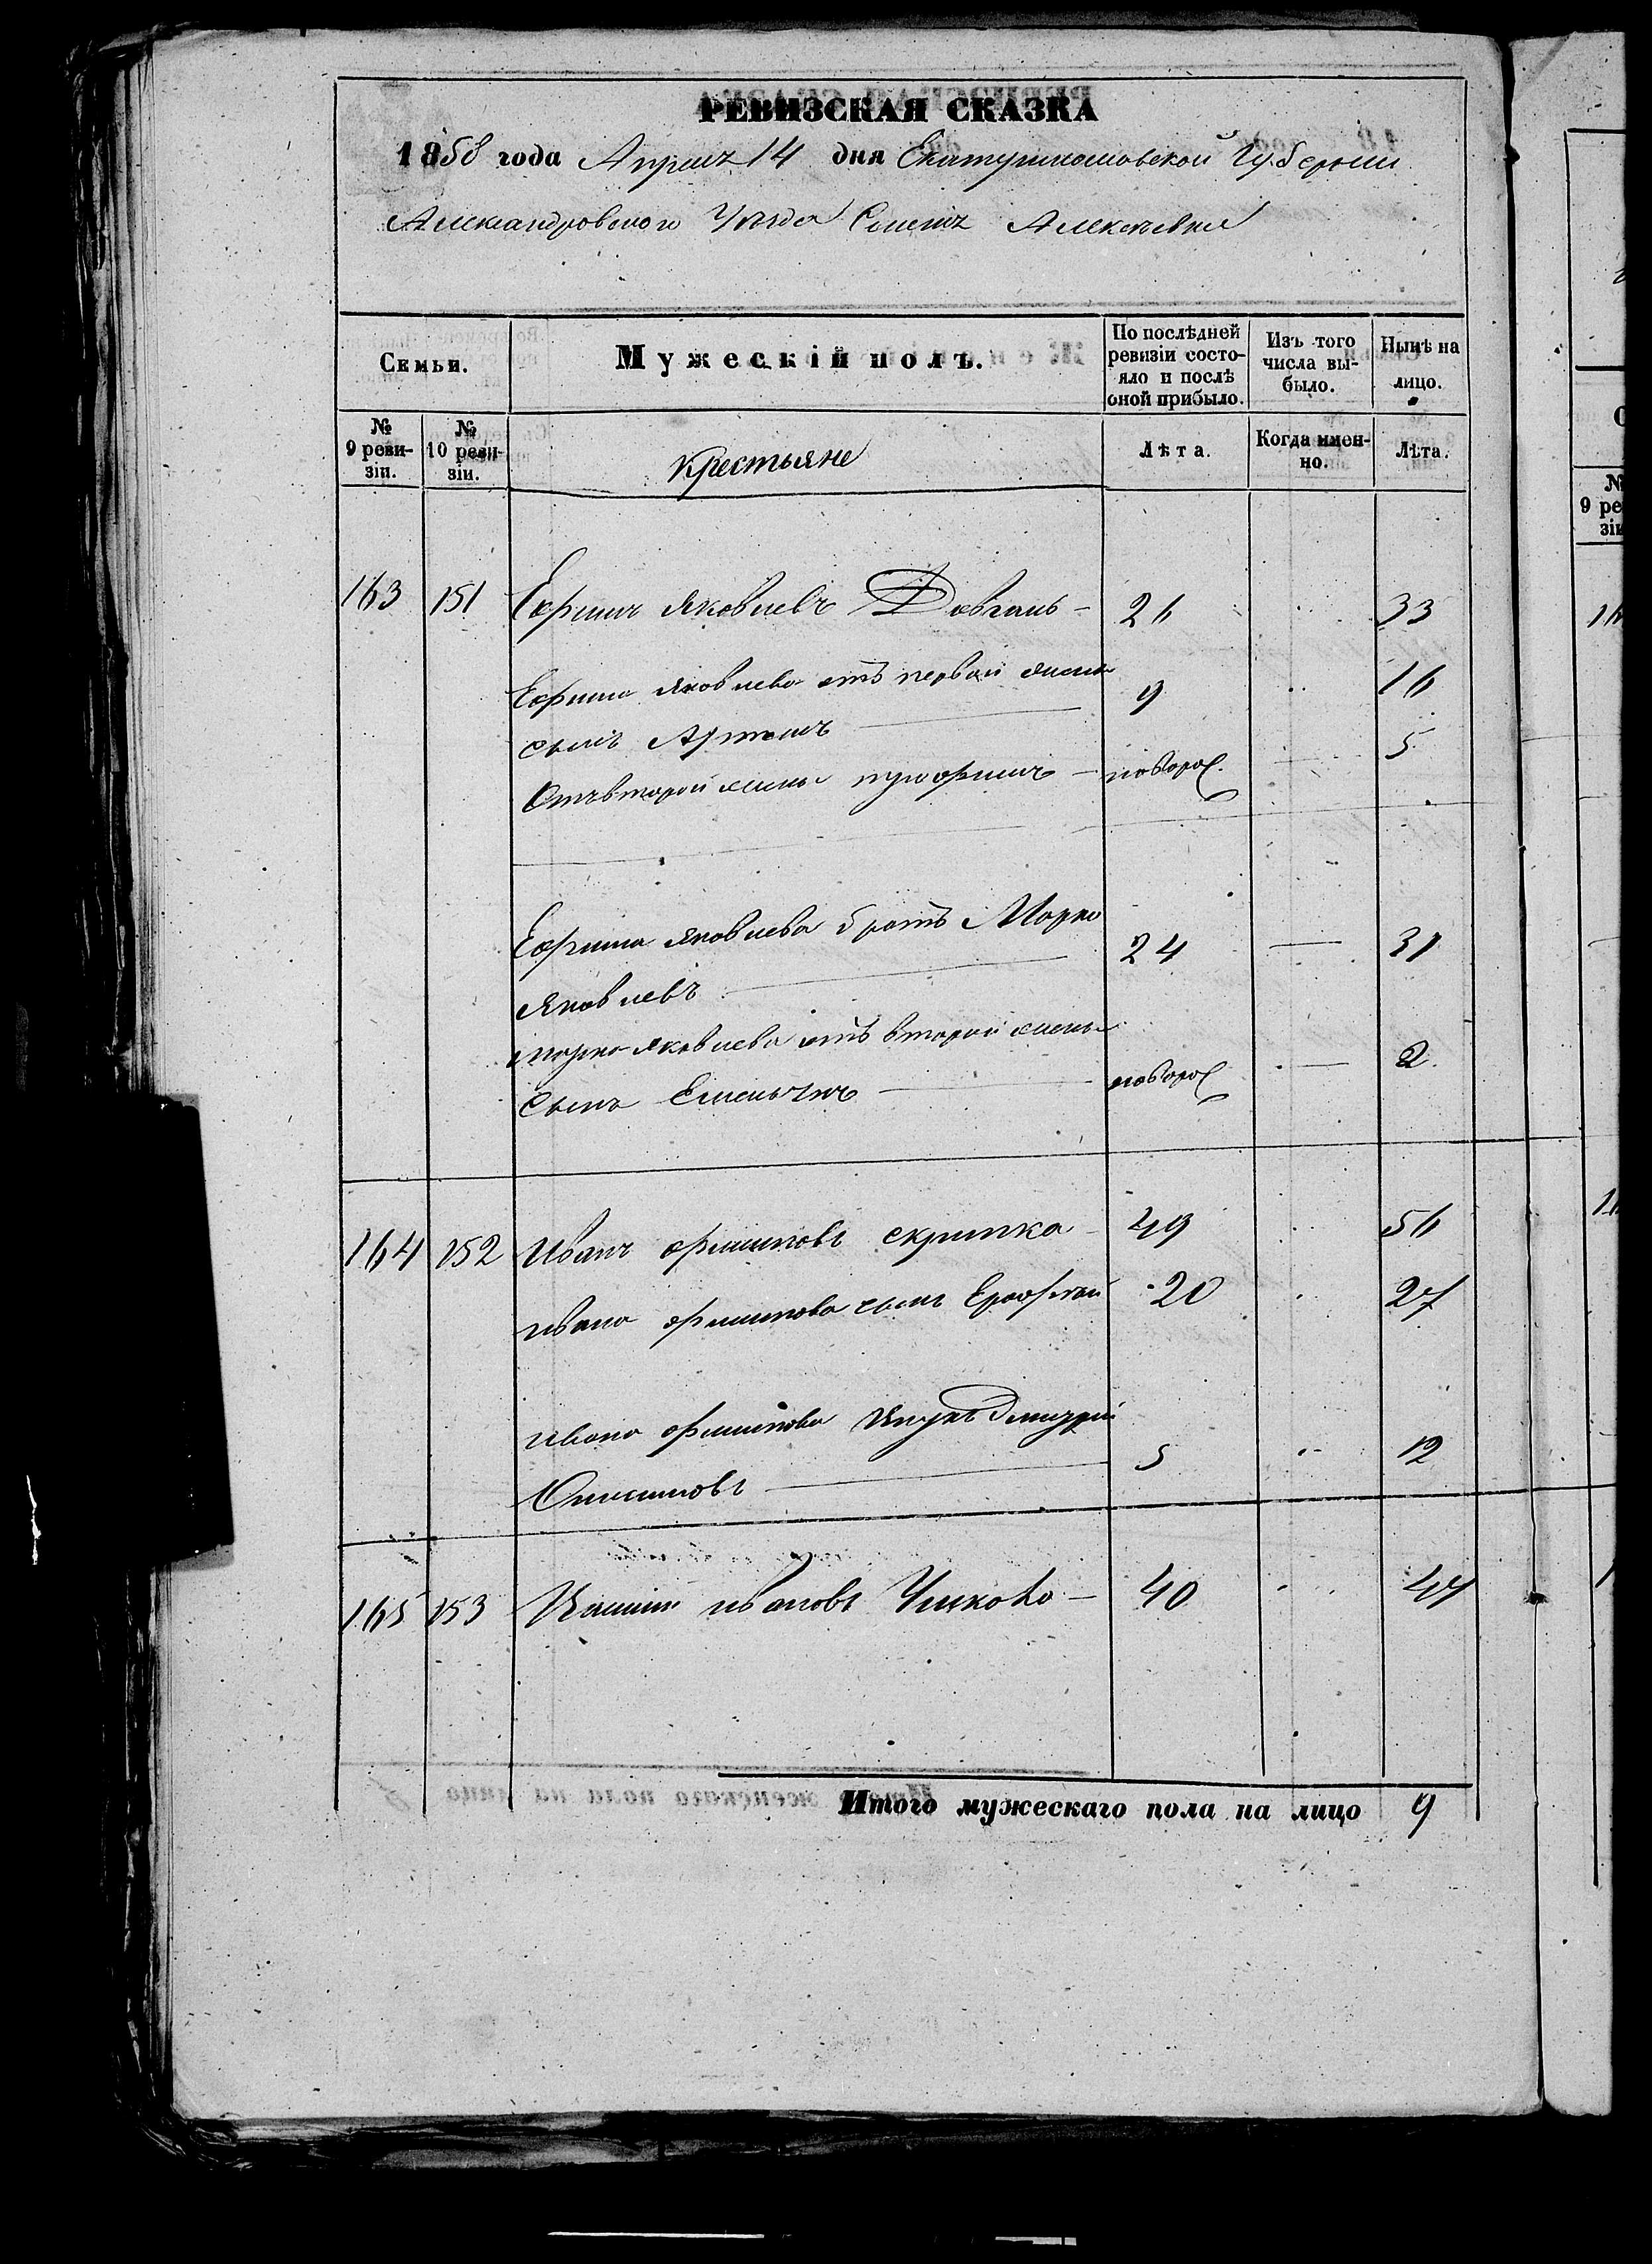 РЕВИЗСКАЯ СКАЗКА
1858 года Апреля 14 дня Екатеринославской Губернии
Александровского Уезда Селения Алексеевки
Семьи.
Мужескій полъ.
По послѣдней ревизіи состо-
яло и послѣ оной прибыло.
Изъ того числа вы-
было.
Нынѣ на лицо.
№ 9 реви-
зіи.
№ 10 реви-
зіи.
Крестьяне
Лѣта.
Когда имен-
но.
Лѣта.
163 151 Ефимъ Яковлевъ Довгань — 26 33
Ефима Яковлева отъ первой жены
сынъ Артемъ — 9 16
Отъ второй жены — новорож. 5
Ефима Яковлева братъ Марко
Яковлевъ — 24 — 31
Марка Яковлева отъ второй жены
сынъ Емельянъ — новорож — 2
164 152 Иванъ Филиповъ Скрипка — 49 56
Ивана Филипова сынъ Ерофей 20 27
Ивана Филипова Внукъ Дмитрий
Онисимовъ — 5 12
165 153 Ивановъ — 40 47
Итого мужескаго пола на лицо 9